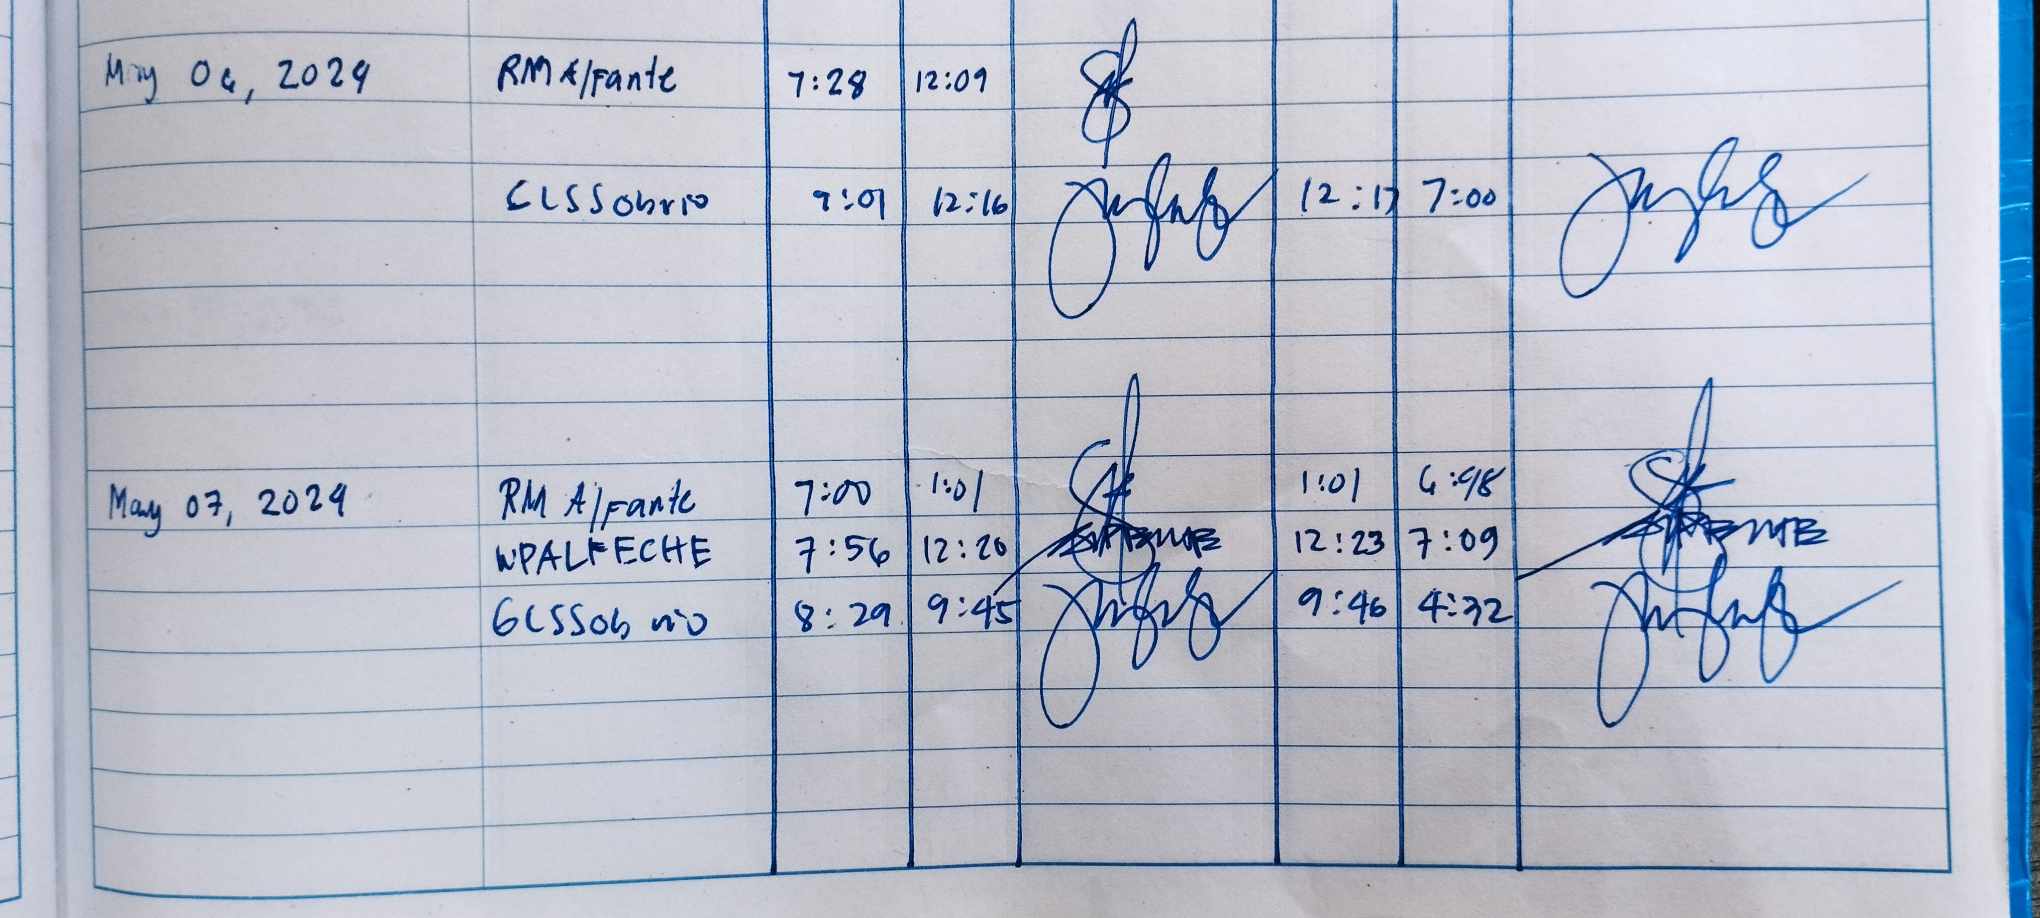 May 06, 2024 RM Alfante 7:28 12:09
GLSSobrio 9:01 12:16 12:17 7:00
May 07, 2024 RM Alfante 7:00 1:01 1:01 6:48
WPALFECHE 7:56 12:20 12:23 7:09
GLSSobrio 8:29 9:45 9:46 4:32